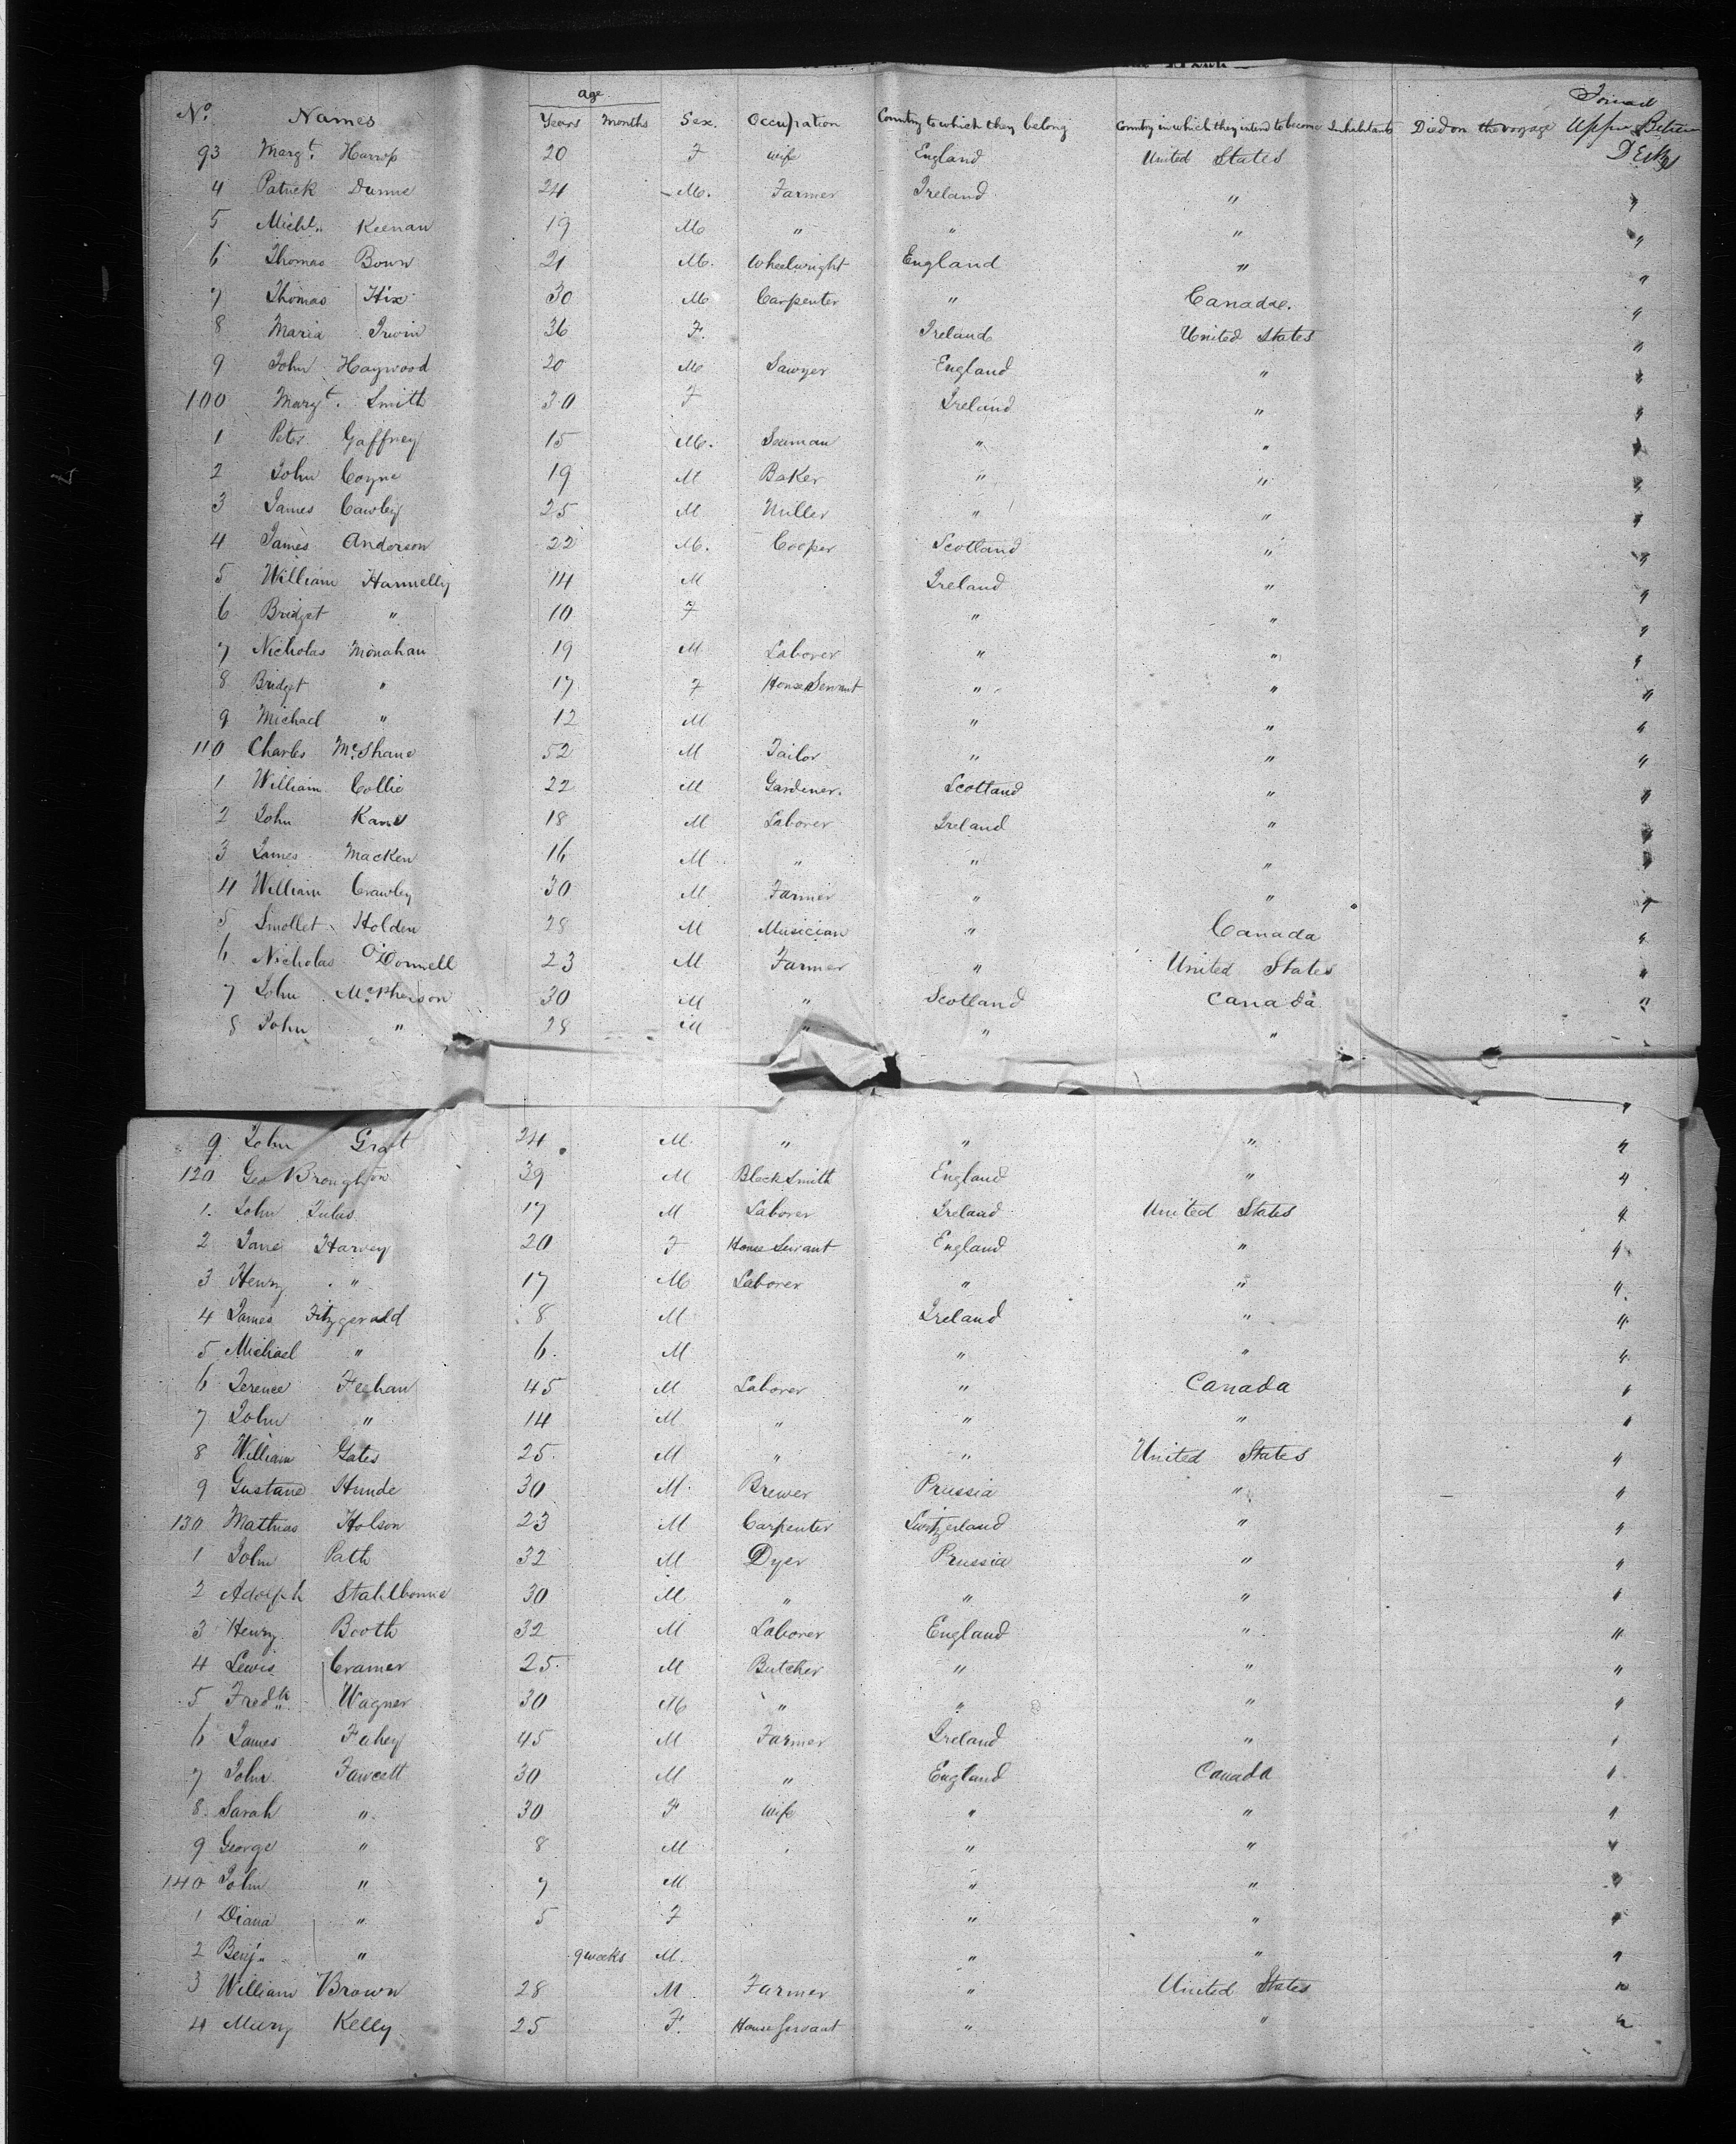 age
Forward
No. Names Years Months Sex Occupation Country to which they belong Country in which they intend to become Inhabitants Died on the voyage Upper Between
Decks
93 Margt. Harrop 20 F Wife England United States
4 Patrick Dunne 24 M. Farmer Ireland " "
5 Michl. Keenan 19 M " " " "
6 Thomas Bown 21 M. Wheelwright England " "
7 Thomas Hix 30 M Carpenter " Canadae. "
8 Maria Irwin 36 F. Ireland United States "
9 John Haywood 20 M Sawyer England " "
100 Margt. Smith 30 F Ireland " "
1 Peter Gaffney 15 M. Seaman " " "
2 John Coyne 19 M Baker " " "
3 James Cawley 25 M Miller " " "
4 James Anderson 22 M. Cooper Scotland " "
5 William Hannelly 14 M Ireland " "
6 Bridget " 10 F " " "
7 Nicholas Monahan 19 M Laborer " " "
8 Bridget " 17 F House Servant " " "
9 Michael " 12 M " " "
110 Charles McShane 52 M Tailor " " "
1 William Collie 22 M Gardener. Scotland " "
2 John Kane 18 M Laborer Ireland " "
3 James Macken 16 M " " " "
4 William Crawley 30 M Farmer " " "
5 Smollet Holden 28 M Musician " Canada "
6 Nicholas O'Donnell 23 M Farmer " United States "
7 John McPherson 30 M " Scotland Canada "
8 John " 28 M " " "
"
9 John Grat 24 M " " " "
120 Geo Broughton 39 M BlackSmith England " "
1. John 17 M Laborer Ireland United States "
2 Jane Harvey 20 F House Servant England " "
3 Henry " 17 M Laborer " " "
4 James Fitzgerald 8 M Ireland " "
5 Michael " 6. M " " "
6 Terence Feehan 45 M Laborer " Canada "
7 John " 14 M " " " "
8 William Gates 25. M " " United States "
9 Gustave Hunde 30 M Brewer Prussia " "
130 Mathias Holson 23 M Carpenter Switzerland " "
1 John Path 32 M Dyer Prussia " "
2 Adolph Stahlbonne 30 M " " " "
3 Henry Booth 32 M Laborer England " "
4 Lewis Cramer 25. M Butcher " " "
5 Fredk. Wagner 30 M " " " "
6 James Fahey 45 M Farmer Ireland " "
7 John Fawcett 30 M " England Canada "
8. Sarah " 30 F Wife " " "
9 George " 8 M " " "
140 John " 7 M " " "
1 Diana " 5 F " " "
2 Benj. " 9 weeks M. " " "
3 William Brown 28 M Farmer " United States "
4 Mary Kelly 25 F. House Servant " " "